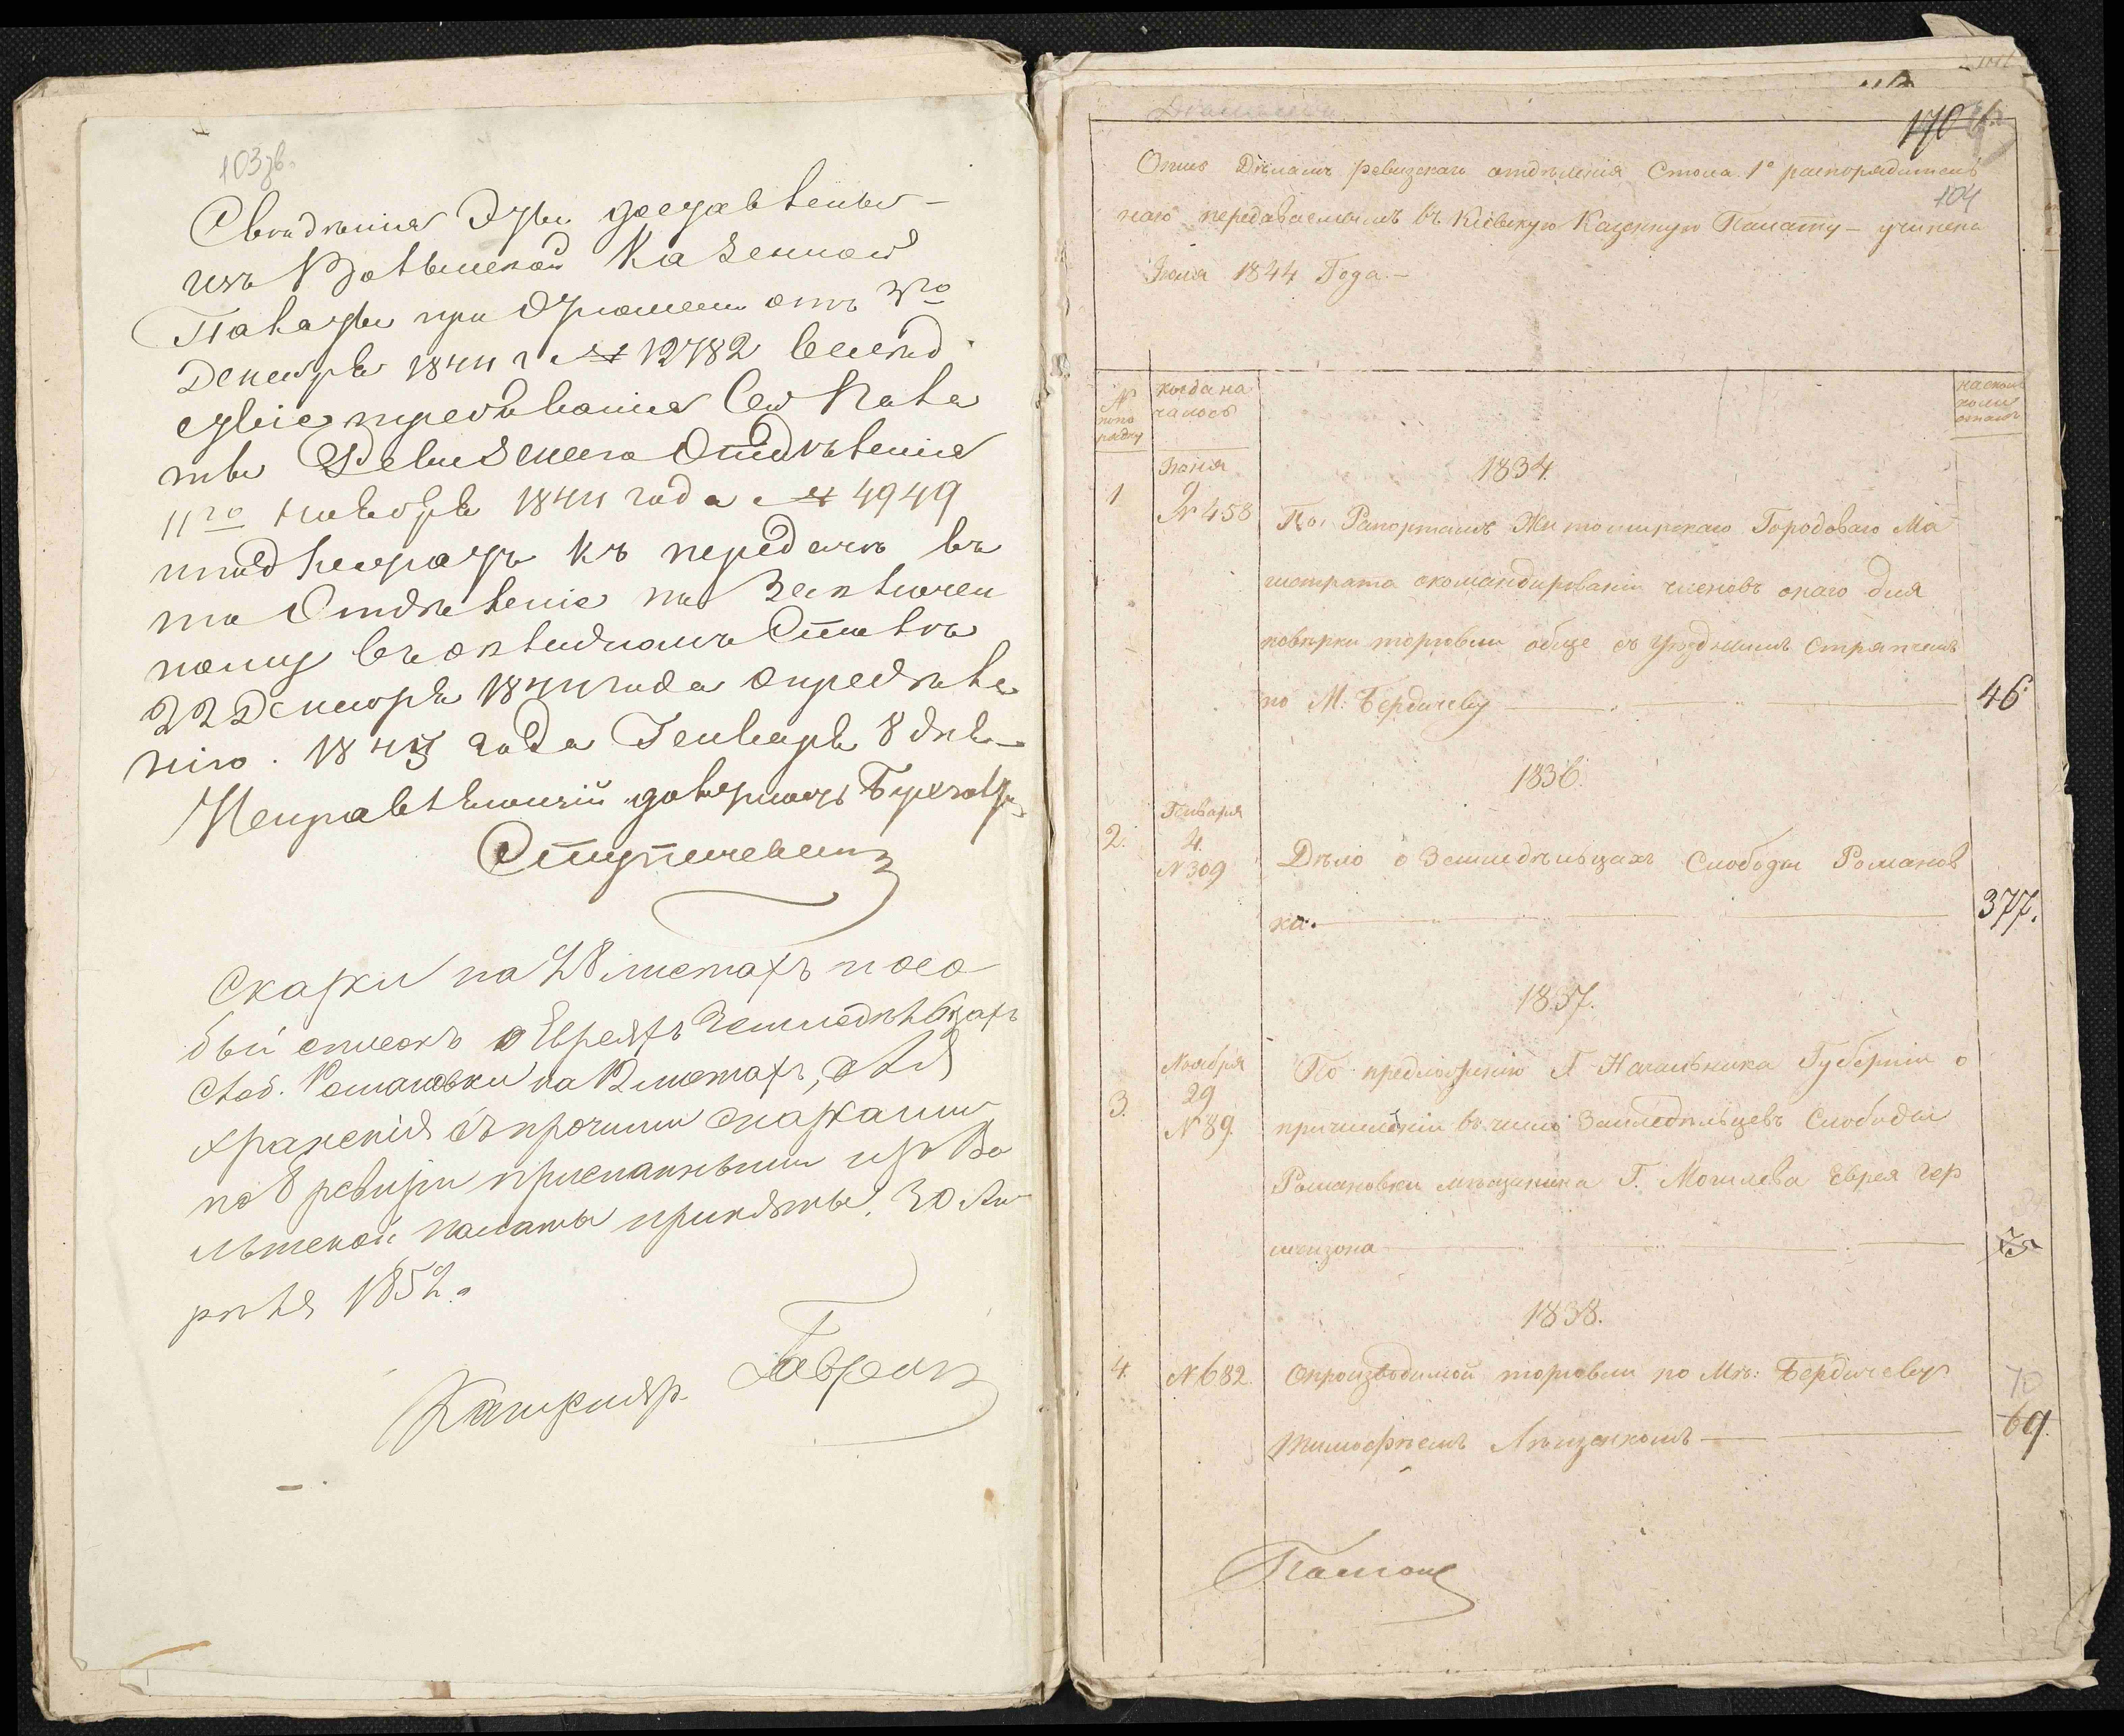 103зв.
Свѣдѣнія Эты доставлены
изъ Волынской Казенной
Палаты при отношеніи отъ 3го
Декабря 1844 г № 12782 вслѣд
ствіе требованія Сей Пала
ты Ревизскаго Отдѣленія
11го ноября 1844 года № 4949
къ передачѣ въ
то Отдѣленіе по Заключен
ному
22 Декабря 1844 года опредѣле
нію. 1845 года Генваря 8 дня
Исправляющій должность Бухгалтера
Сказки на 28 листахъ и осо
бый списокъ о Евреяхъ Земледѣльцахъ
Слоб. Романовки на 12 листахъ, для
храненія съ прочими сказками
по 8 ревизіи присланными изъ Во
лынской палаты приняты. 30 Ап
рѣля 1852.
170
104
Опись Дѣламъ Ревизскаго отдѣленія Стола 1го распорядитель
наго передаваемымъ въ Кіевскую Казенную Палату – учинена
Іюля 1844 Года.
№ по порядку
когда на
чалось
на сколь
1834.
Іюня
1. 2 № 458 По Рапортамъ Житомирскаго Городоваго Ма
гистрата о командированіи членовъ онаго для
повѣрки торговли обще съ Уѣзднымъ Стряпчимъ
по М: Бердичеву 46
1836.
Генваря
2. 4. № 309 Дѣло о Земледѣльцахъ Слободы Романов
ка. 377.
1837.
Ноября
3. 29 № 89. По предложенію Г. Начальника Губерніи о
причисленіи въ число Земледѣльцевъ Слободы
Романовки мѣщанина Г. Могилева Еврея Гер
шензона
1838.
4. № 682. О производимой торговли по Мѣ: Бердичеву 70
Тимофѣемъ Лященкомъ 69.